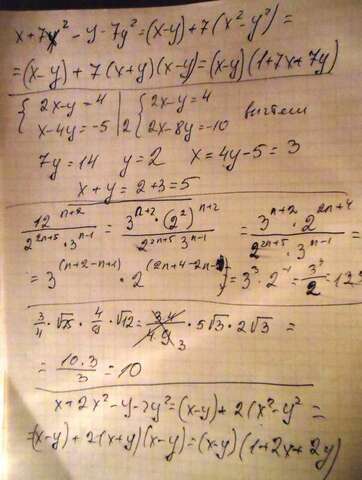 x+7x² - y - 7y² = (x-y) + 7(x²-y²) =
= (x-y) + 7(x+y)(x-y) = (x-y)(1+7x+7y)
{ 2x-y=4 | { 2x-y=4
{ x-4y=-5 | 2 { 2x-8y=-10 вычтем
7y=14 y=2 x=4y-5=3
x+y=2+3=5
12^(n+2) / (2^(2n+5) · 3^(n-1)) = 3^(n+2) · (2²)^(n+2) / (2^(2n+5) · 3^(n-1)) = 3^(n+2) · 2^(2n+4) / (2^(2n+5) · 3^(n-1)) =
= 3^(n+2-n+1) · 2^(2n+4-2n-5) = 3³ · 2^-1 = 3³/2 =
3/4 · √75 · 4/9 · √12 = 3·4/(4·9) 3 · 5√3 · 2√3 =
= 10·3/3 = 10
x+2x²-y-2y² = (x-y) + 2(x²-y² =
= (x-y) + 2(x+y)(x-y) = (x-y)(1+2x+2y)